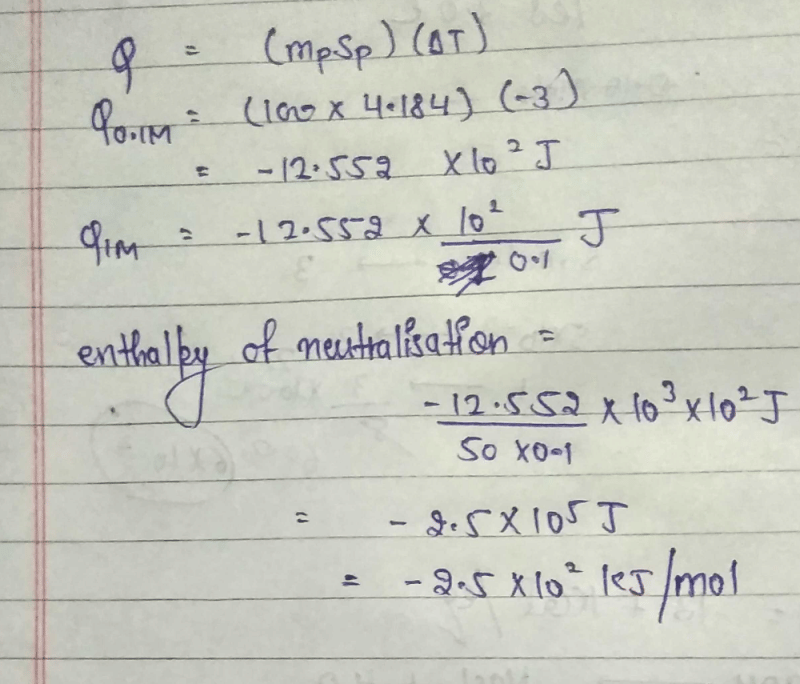 q = (mpsp) (ΔT)
q0.1M = (100 x 4.184) (-3)
= -12.552 x 10² J
q1M = -12.552 x 10² / 0.1 J
enthalpy of neutralisation =
-12.552 x 10³ x 10² J
50 x 0.1
= - 2.5 x 10⁵ J
= - 2.5 x 10² kJ/mol